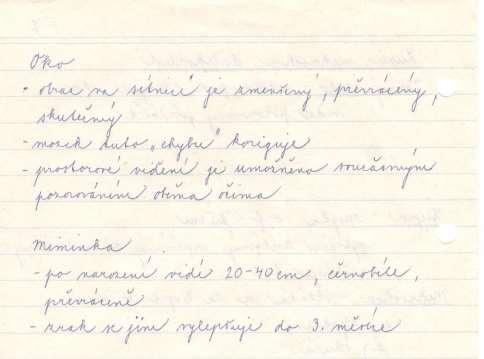 Oko
- obraz na sítnici je zmenšený, převrácený,
skutečný
- mozek tuto "chybu" koriguje
- prostorové vidění je umožněno současným
pozorováním oběma očima
Miminka
- po narození vidí 20-40cm, černobíle,
převráceně
- zrak se jim vylepšuje do 3. měsíce